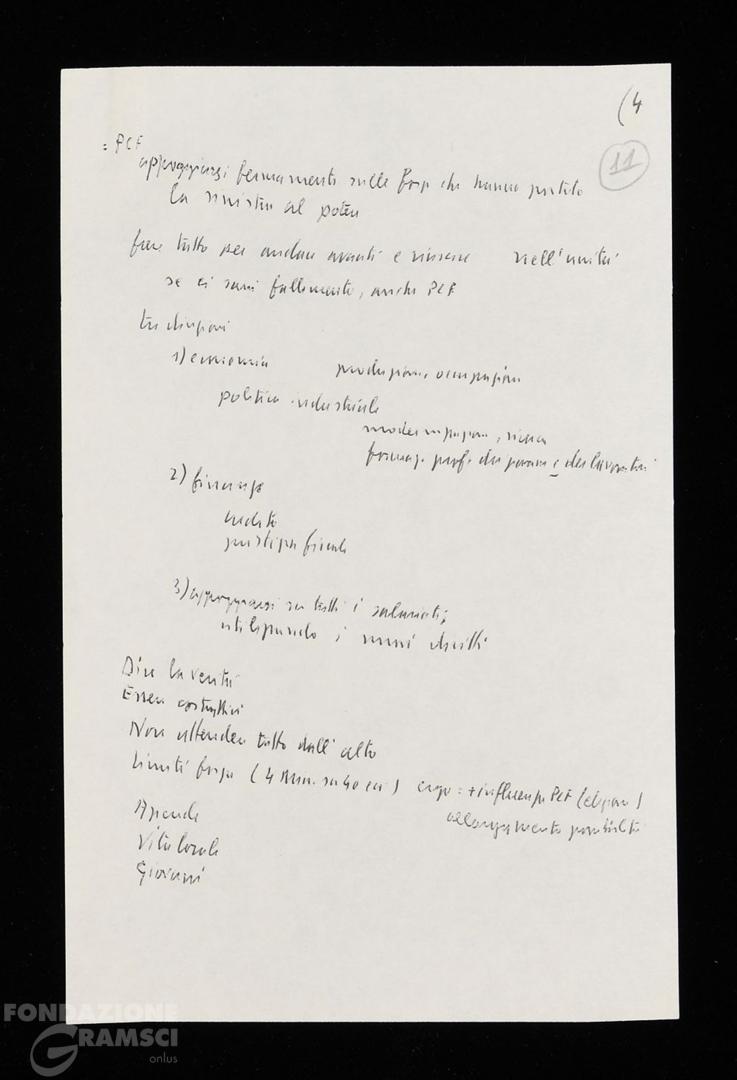 (4
11
= PCF
appoggiarsi fermamente sulle forze che hanno portato
la sinistra al potere
fare tutto per andare avanti e riuscire nell'unità
se ci sarà fallimento, anche PCF
tre direzioni
1) economia produzione, occupazione
politica industriale
modernizzazione, ricerca
formaz. prof. dei giovani e dei lavoratori
2) finanze
credito
giustizia fiscale
3) appoggiarsi su tutti i salariati;
utilizzando i nuovi diritti
Dire la verità
Essere costruttivi
Non attendere tutto dall'alto
Limiti forze (4 Min. su 40 ecc) ergo: + influenza PCF (elezioni)
allargamento possibilità
Aziende
Vita locale
Giovani
FONDAZIONE
GRAMSCI
onlus